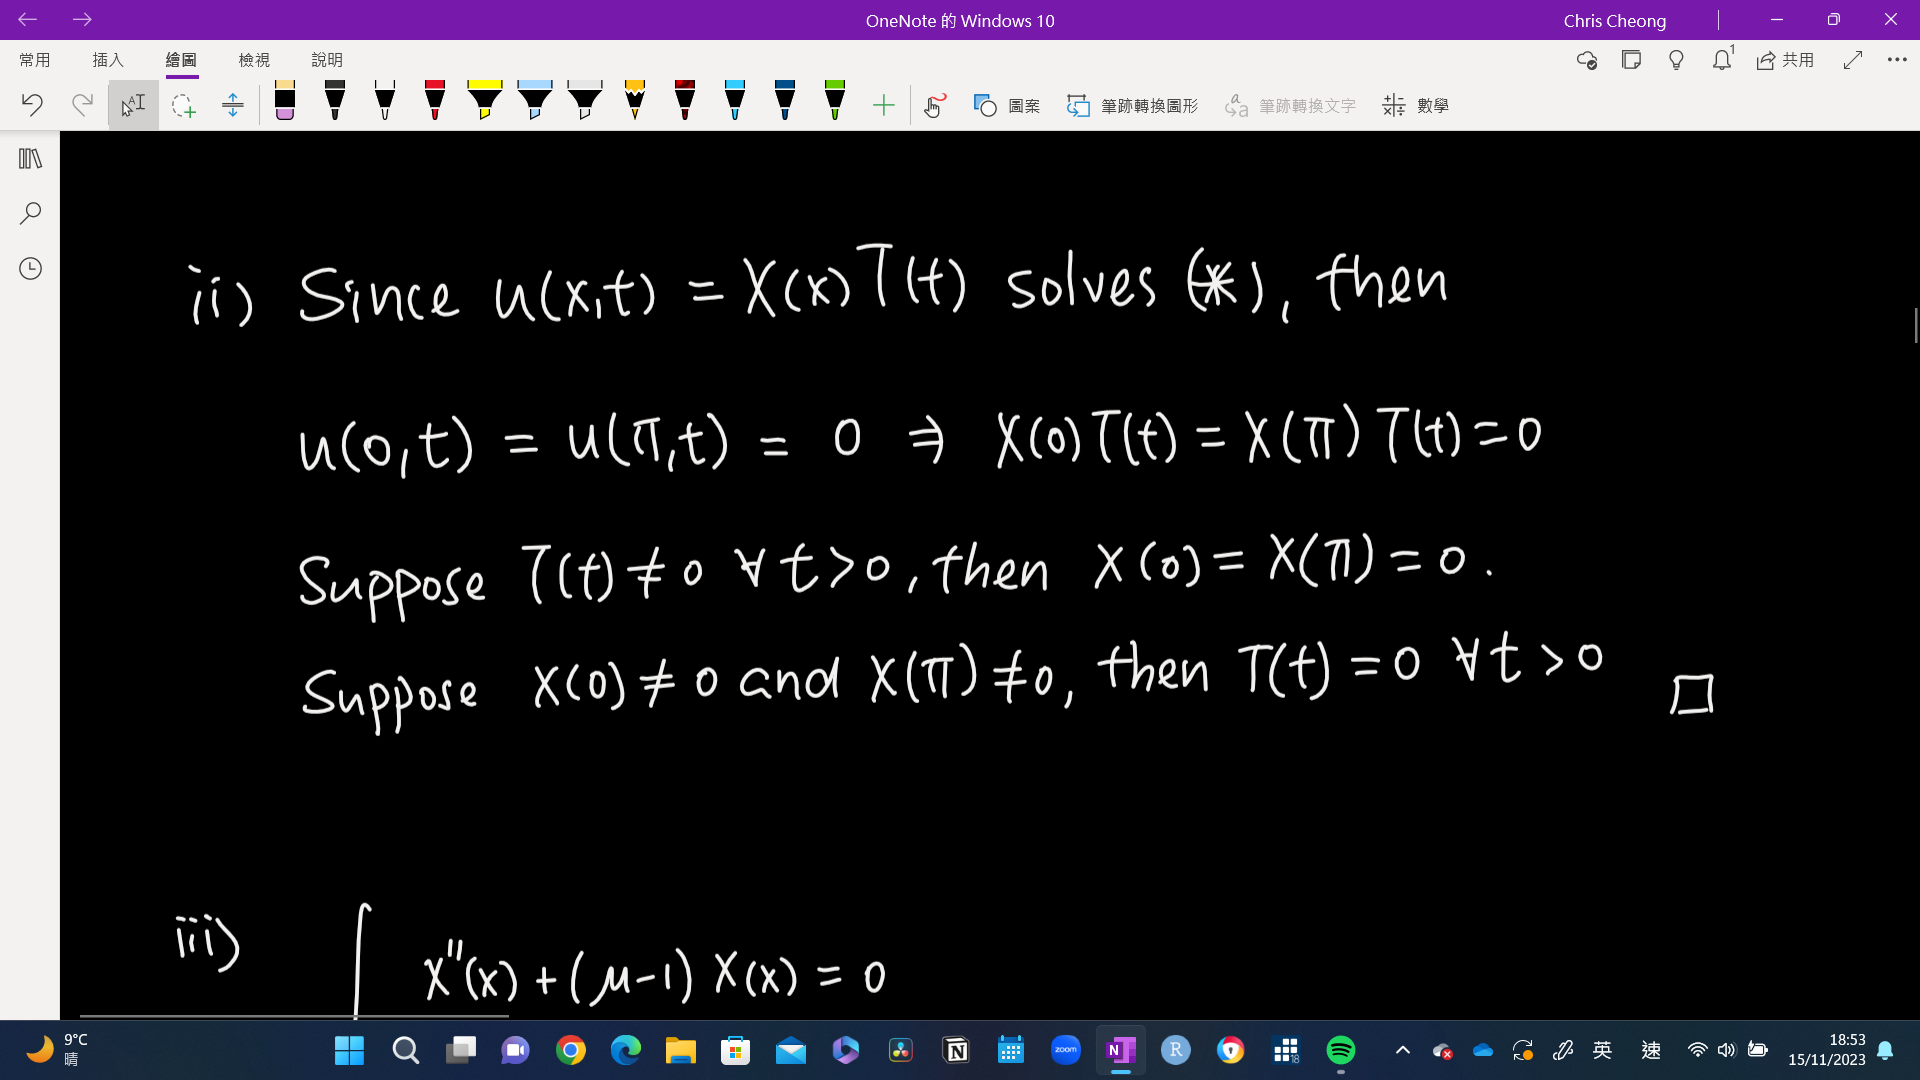 OneNote 的 Windows 10
Chris Cheong
常用 插入 繪圖 檢視 說明
1 共用
圖案 筆跡轉換圖形 筆跡轉換文字 數學
ii) Since u(x,t) = X(x)T(t) solves (*), then
u(0,t) = u(π,t) = 0 ⇒ X(0)T(t) = X(π)T(t) = 0
Suppose T(t) ≠ 0 ∀t>0, then X(0) = X(π) = 0.
Suppose X(0) ≠ 0 and X(π) ≠ 0, then T(t) = 0 ∀t > 0 □
iii) X''(x) + (μ-1) X(x) = 0
9°C
晴
zoom
N
R
18
英 速
18:53
15/11/2023